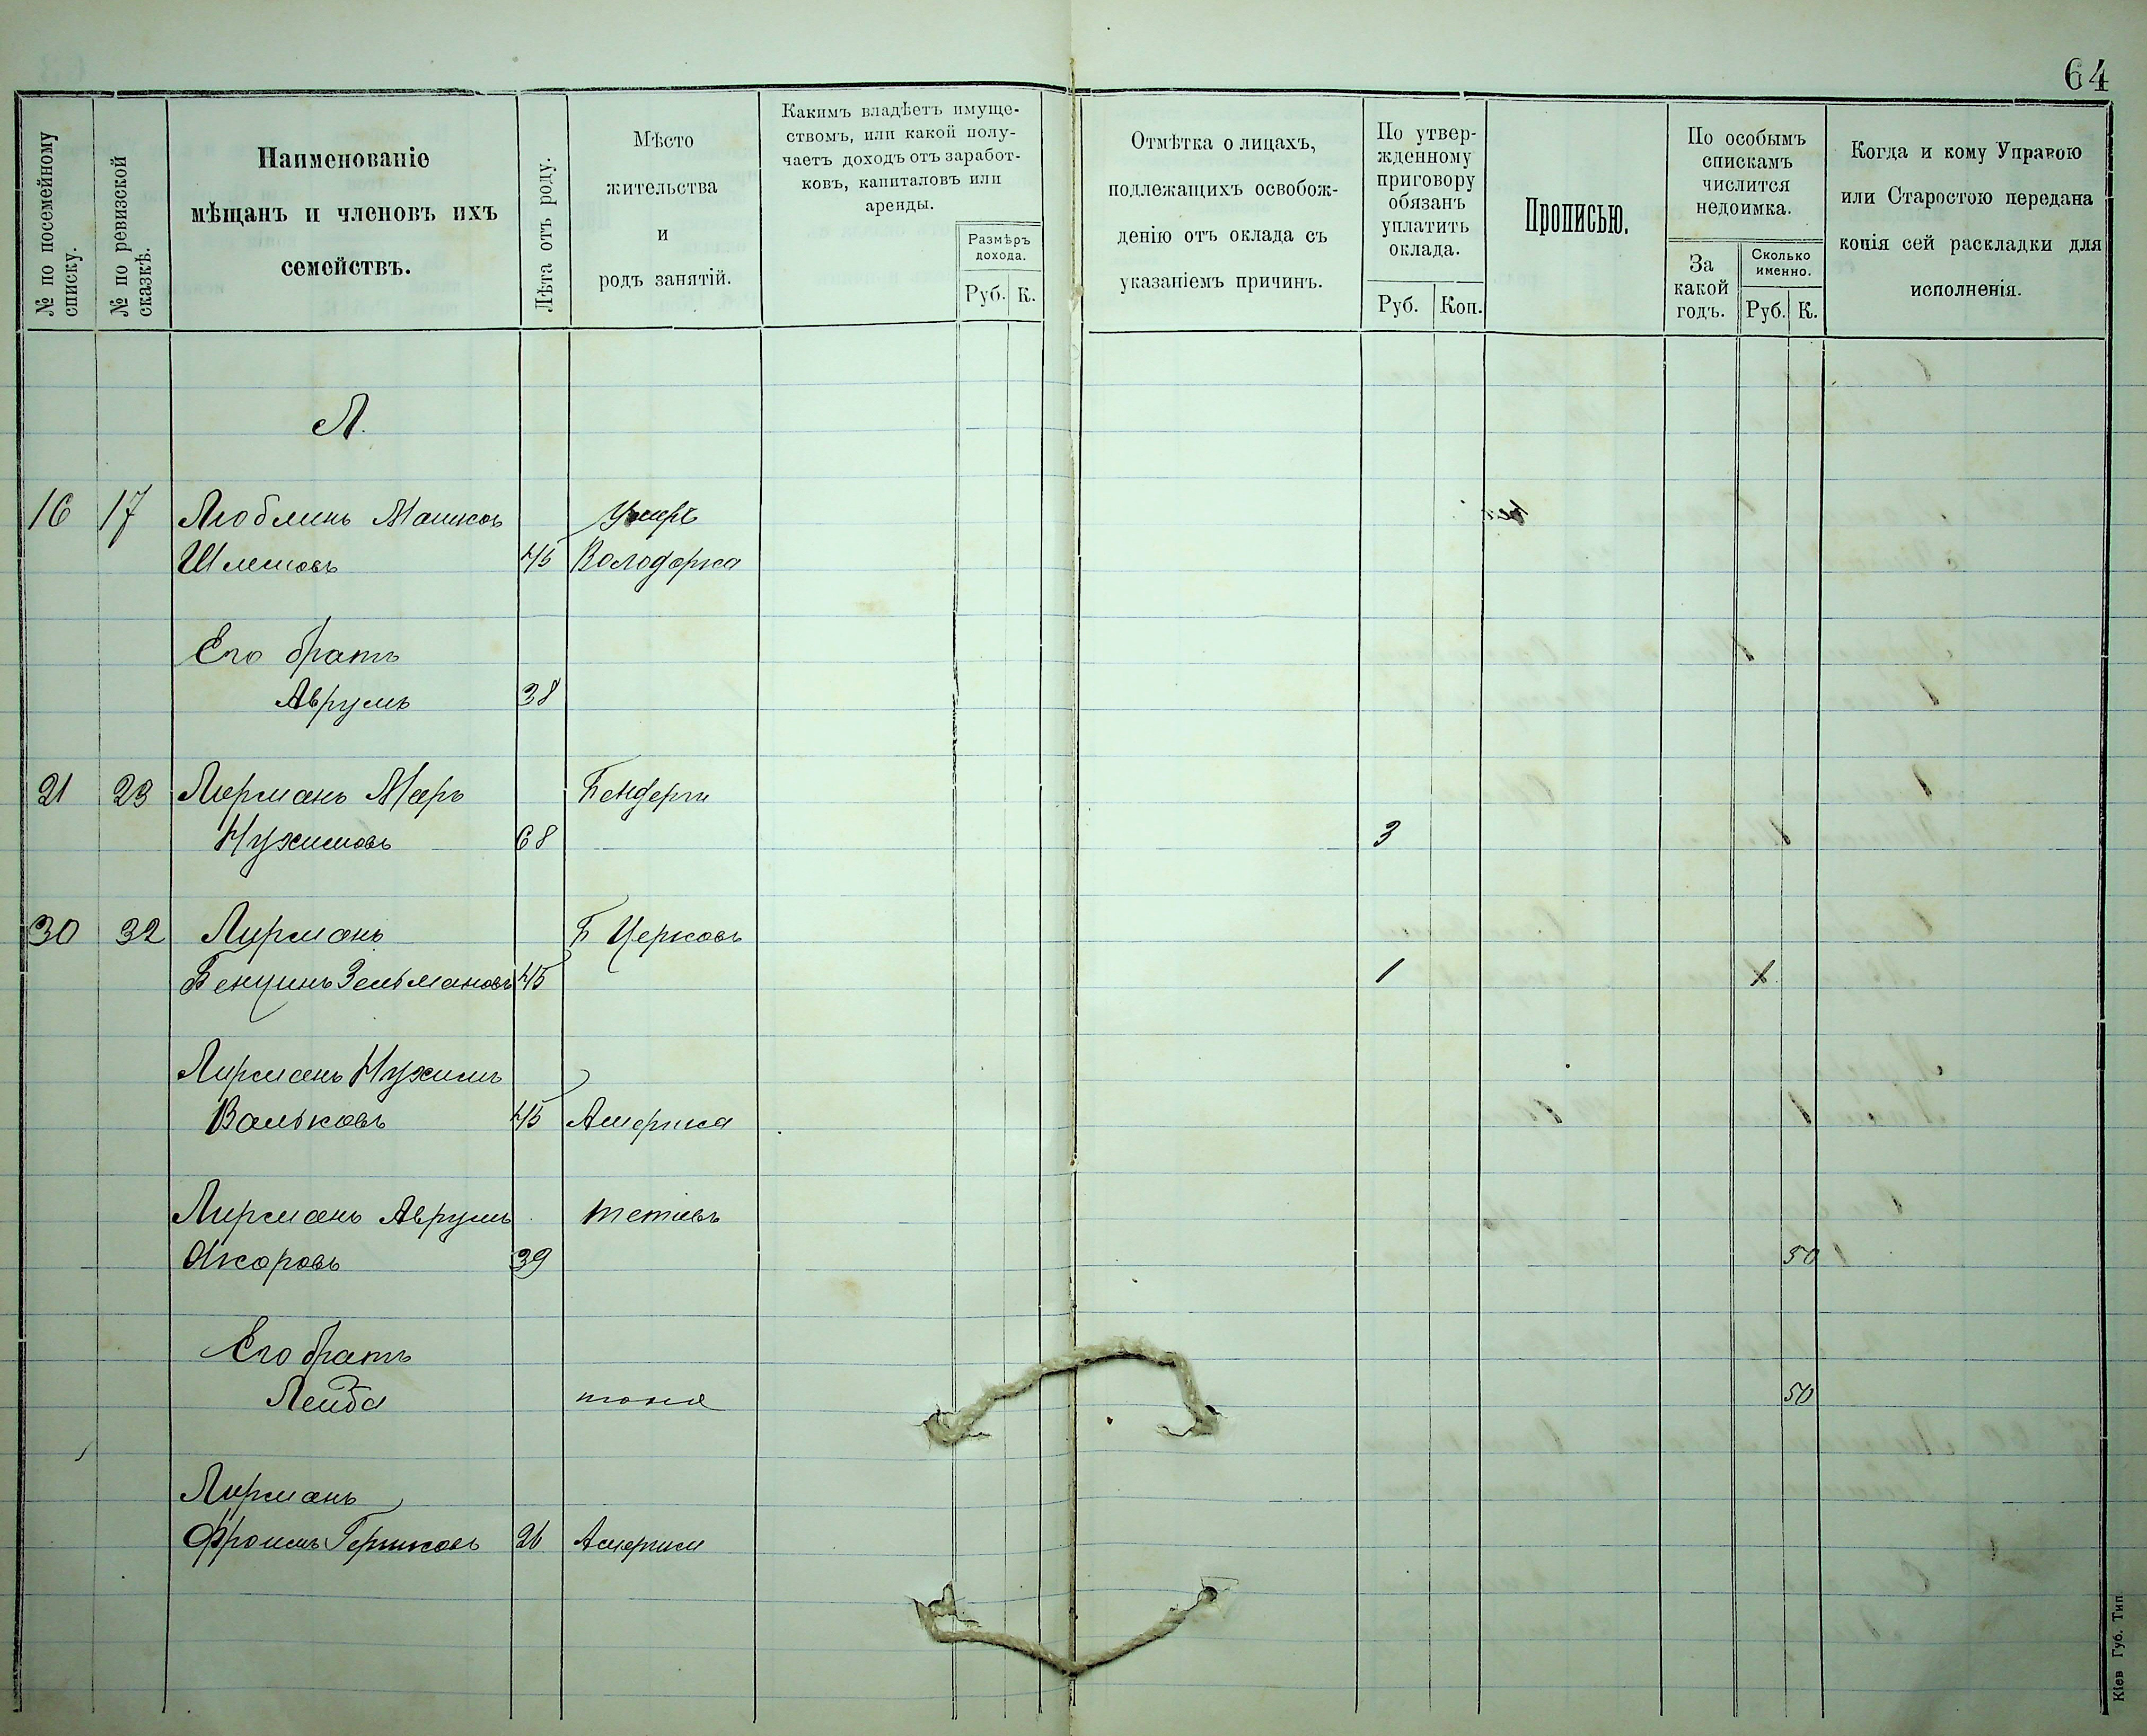 64
№ по посемейному списку.
№ по ревизской сказкѣ.
Наименованіе
мѣщанъ и членовъ ихъ
семействъ.
Лѣта отъ роду.
Мѣсто
жительства
и
родъ занятій.
Какимъ владѣетъ имуще-
ствомъ, или какой полу-
чаетъ доходъ отъ заработ-
ковъ, капиталовъ или
аренды.
Размѣръ
дохода.
Руб. К.
Отмѣтка о лицахъ,
подлежащихъ освобож-
денію отъ оклада съ
указаніемъ причинъ.
По утвер-
жденному
приговору
обязанъ
уплатить
оклада.
Руб. Коп.
Прописью.
По особымъ
спискамъ
числится
недоимка.
За
какой
годъ.
Сколько
именно.
Руб. К.
Когда и кому Управою
или Старостою передана
копія сей раскладки для
исполненія.
Л.
16 17 Люблинъ Машко Умеръ
Шлемовъ 45 Володарка
Его братъ
Аврумъ 38
21 23 Лирманъ Меръ Бендери
Нухимовъ 68 3
30 32 Лирманъ Б Церковь
Бенцинъ Зельмановъ 45 1 1
Лирманъ Нухимъ
Вольковъ 45 Америка
Лирманъ Аврумъ тетіевъ
Янкоровъ 39 50
Его братъ
Лейба тоже 50
Лирманъ
Фроимъ Гершковъ 26 Америки
Кіев Губ. Тип.